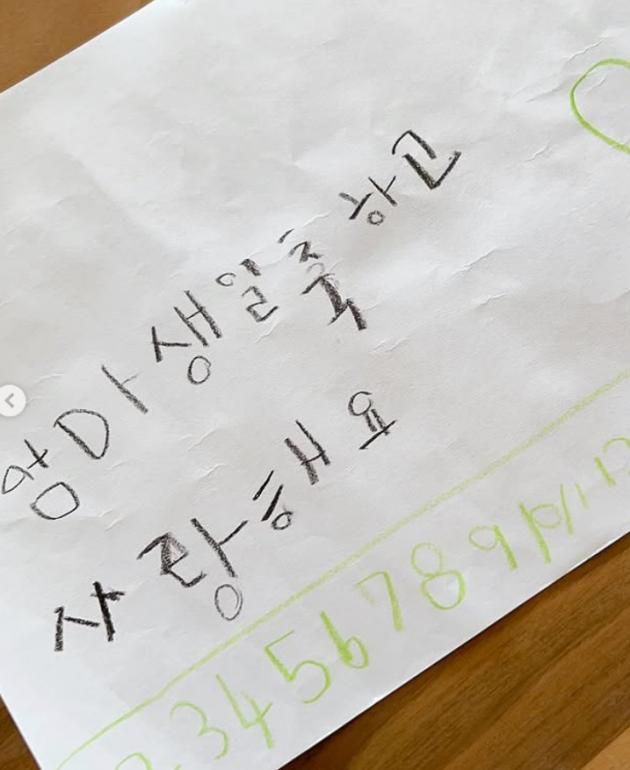 엄마 생일축 하고
사랑해요
2 3 4 5 6 7 8 9 10 11 12